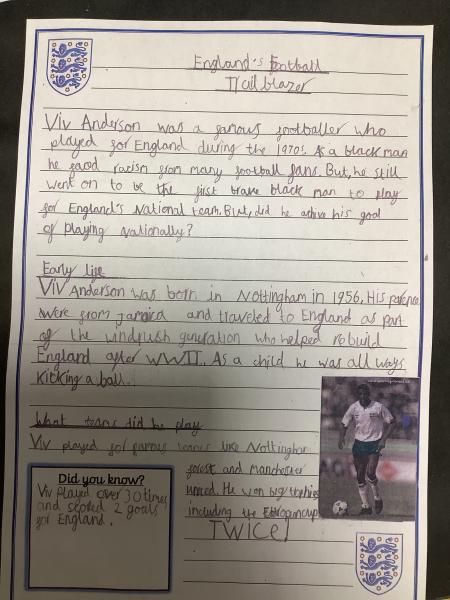 England's Football
Trailblazer
Viv Anderson was a famous footballer who
played for England during the 1970s. As a black man
he faced racism from many football fans. But, he still
went on to be the first brave black man to play
for England's National team. But, did he achive his goal
of playing nationally?
Early life
Viv Anderson was born in Nottingham in 1956. His parents
were from jamaica and traveled to England as part
of the windrush generation who helped rebuild
England after WWII. As a child he was all ways
kicking a ball.
What teams did he play
Viv played for famous teams like Nottingham
forest and manchester
united. He won big trophies
including the European cup
TWICE!
Did you know?
Viv played over 30 times
and scored 2 goals
for England.